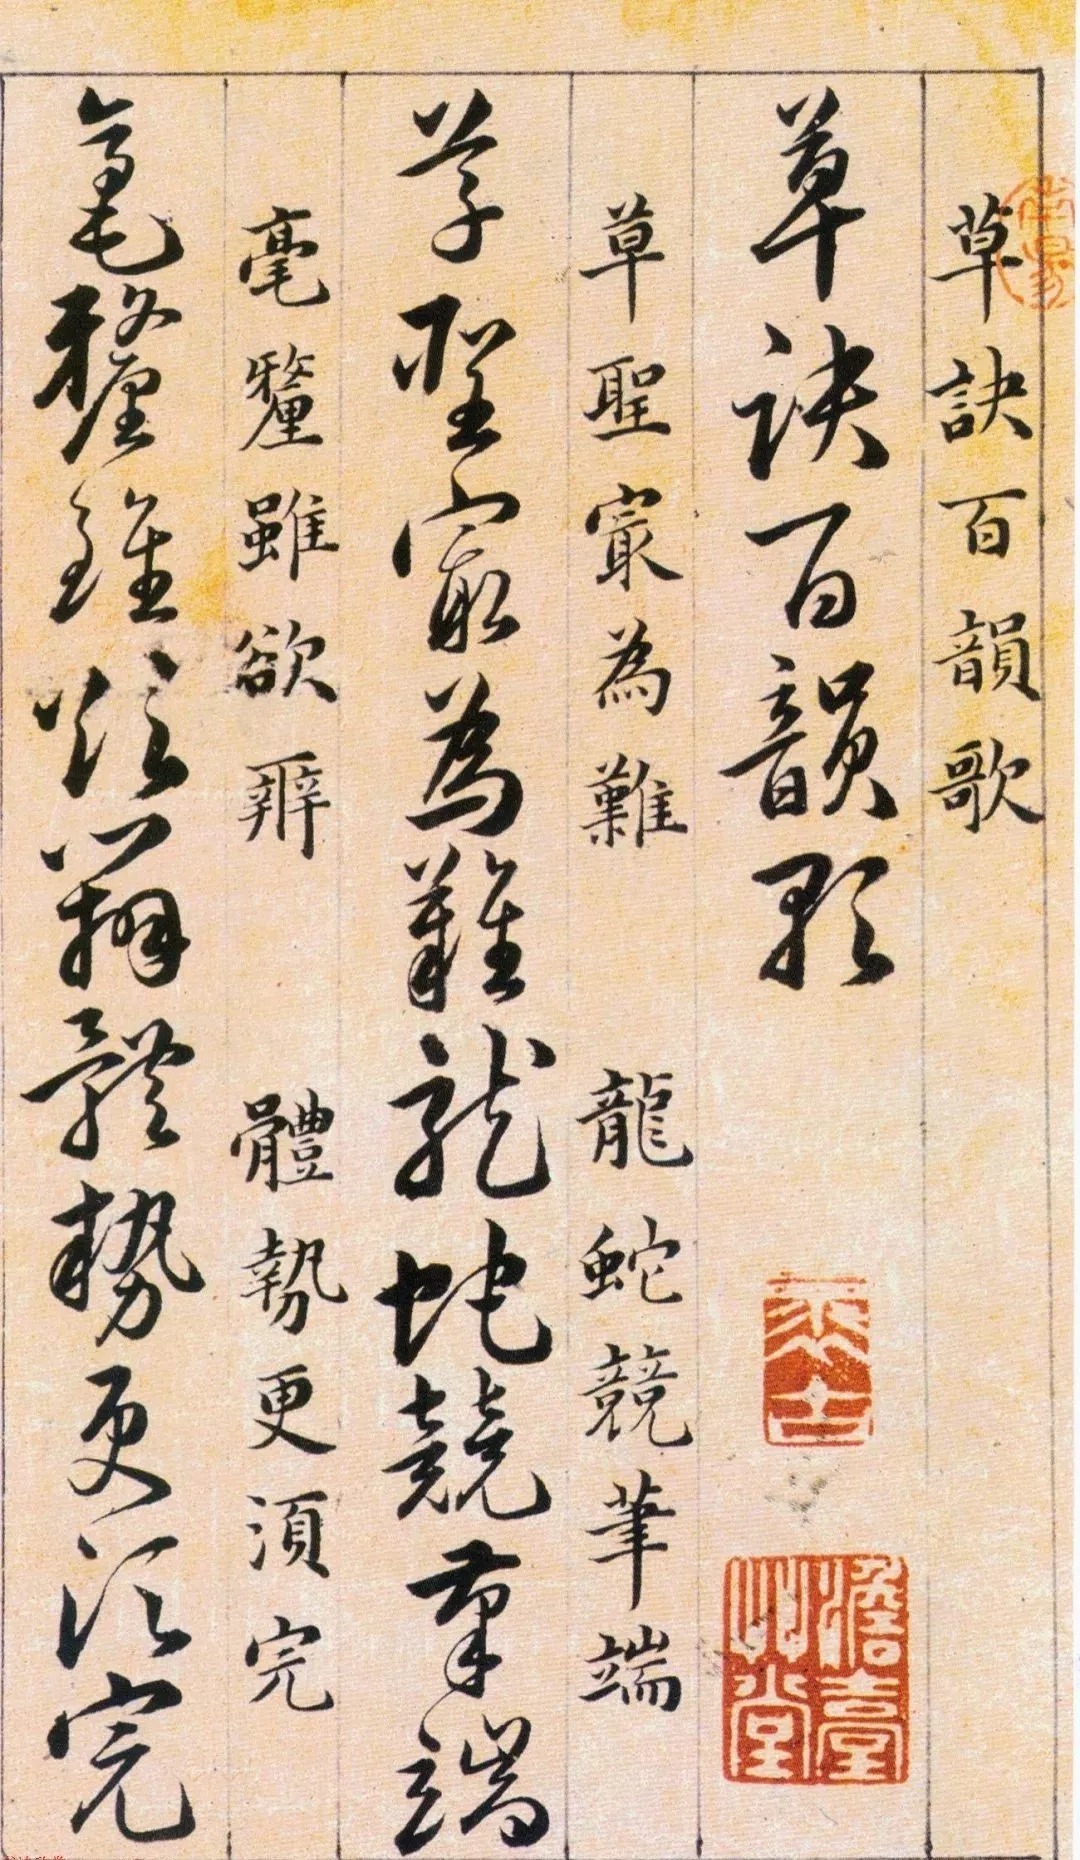 草訣百韻歌
草訣百韻歌
草聖寂為難 龍蛇競筆端
草聖寂為難龍蛇競筆端
毫釐雖欲辨 體勢更須完
毫釐雖欲辨體勢更須完